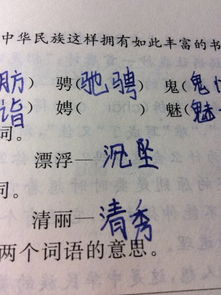 中华民族这样拥有如此丰富的书
肪） 骋（驰骋） 鬼（鬼
诣） 娉（ ） 魅（魅
词。
漂浮—沉坠
同。
清丽—清秀
两个词语的意思。